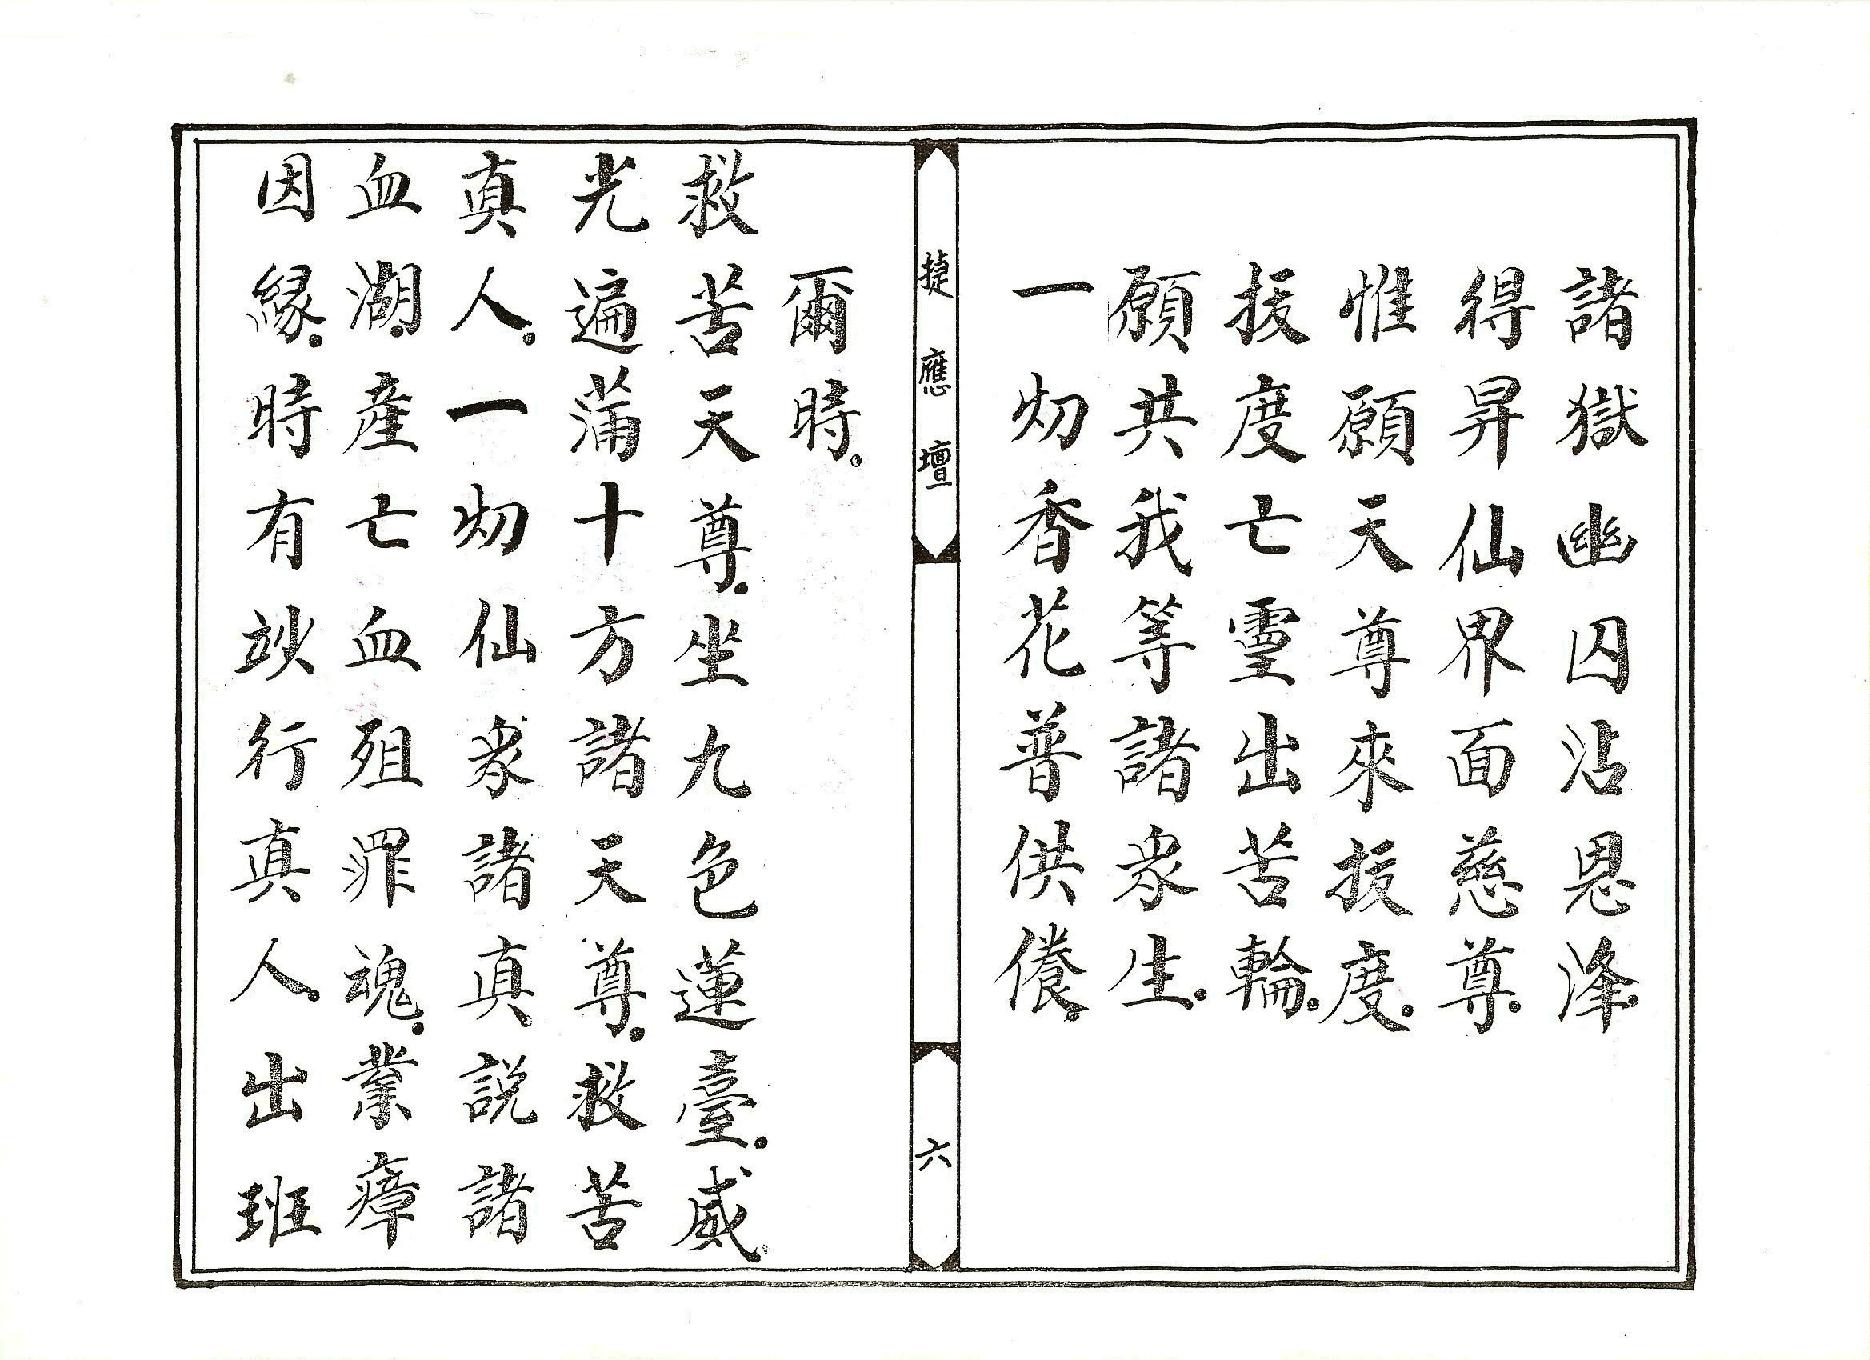 諸獄幽囚沾恩澤。
得昇仙界面慈尊。
惟願天尊來拔度。
拔度亡靈出苦輪。
願共我等諸衆生。
一切香花普供養。
捷應壇
六
爾時。
救苦天尊。坐九色蓮臺。威
光遍蒲十方諸天尊。救苦
真人。一切仙衆諸真説諸
血湖。產亡血殂罪魂。業瘴
因緣。時有妙行真人。出班